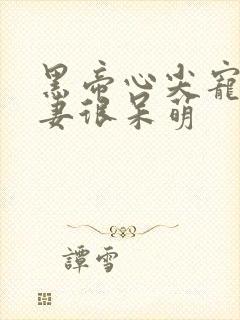 黑帝心尖寵
妻很呆萌
譚雪